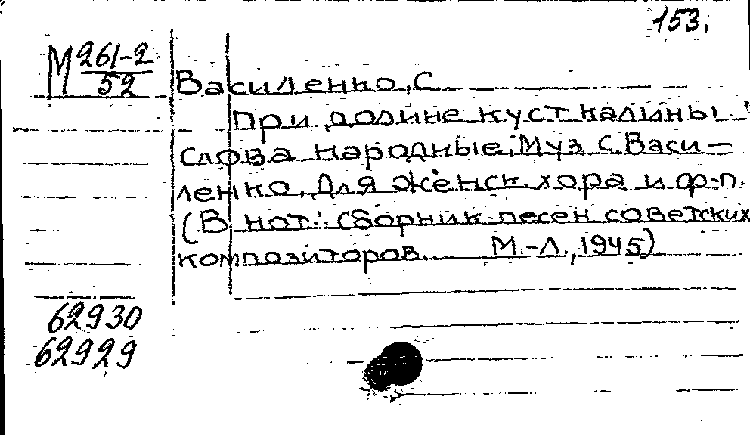 153.
М 261-2
52
Василенко, С.
При долине куст калины.
Слова народные. Муз. С. Васи-
ленко. Для женск. хора и ф-п.
(В нот.: Сборник песен советских
композиторов. М.-Л., 1945)
62930
62929